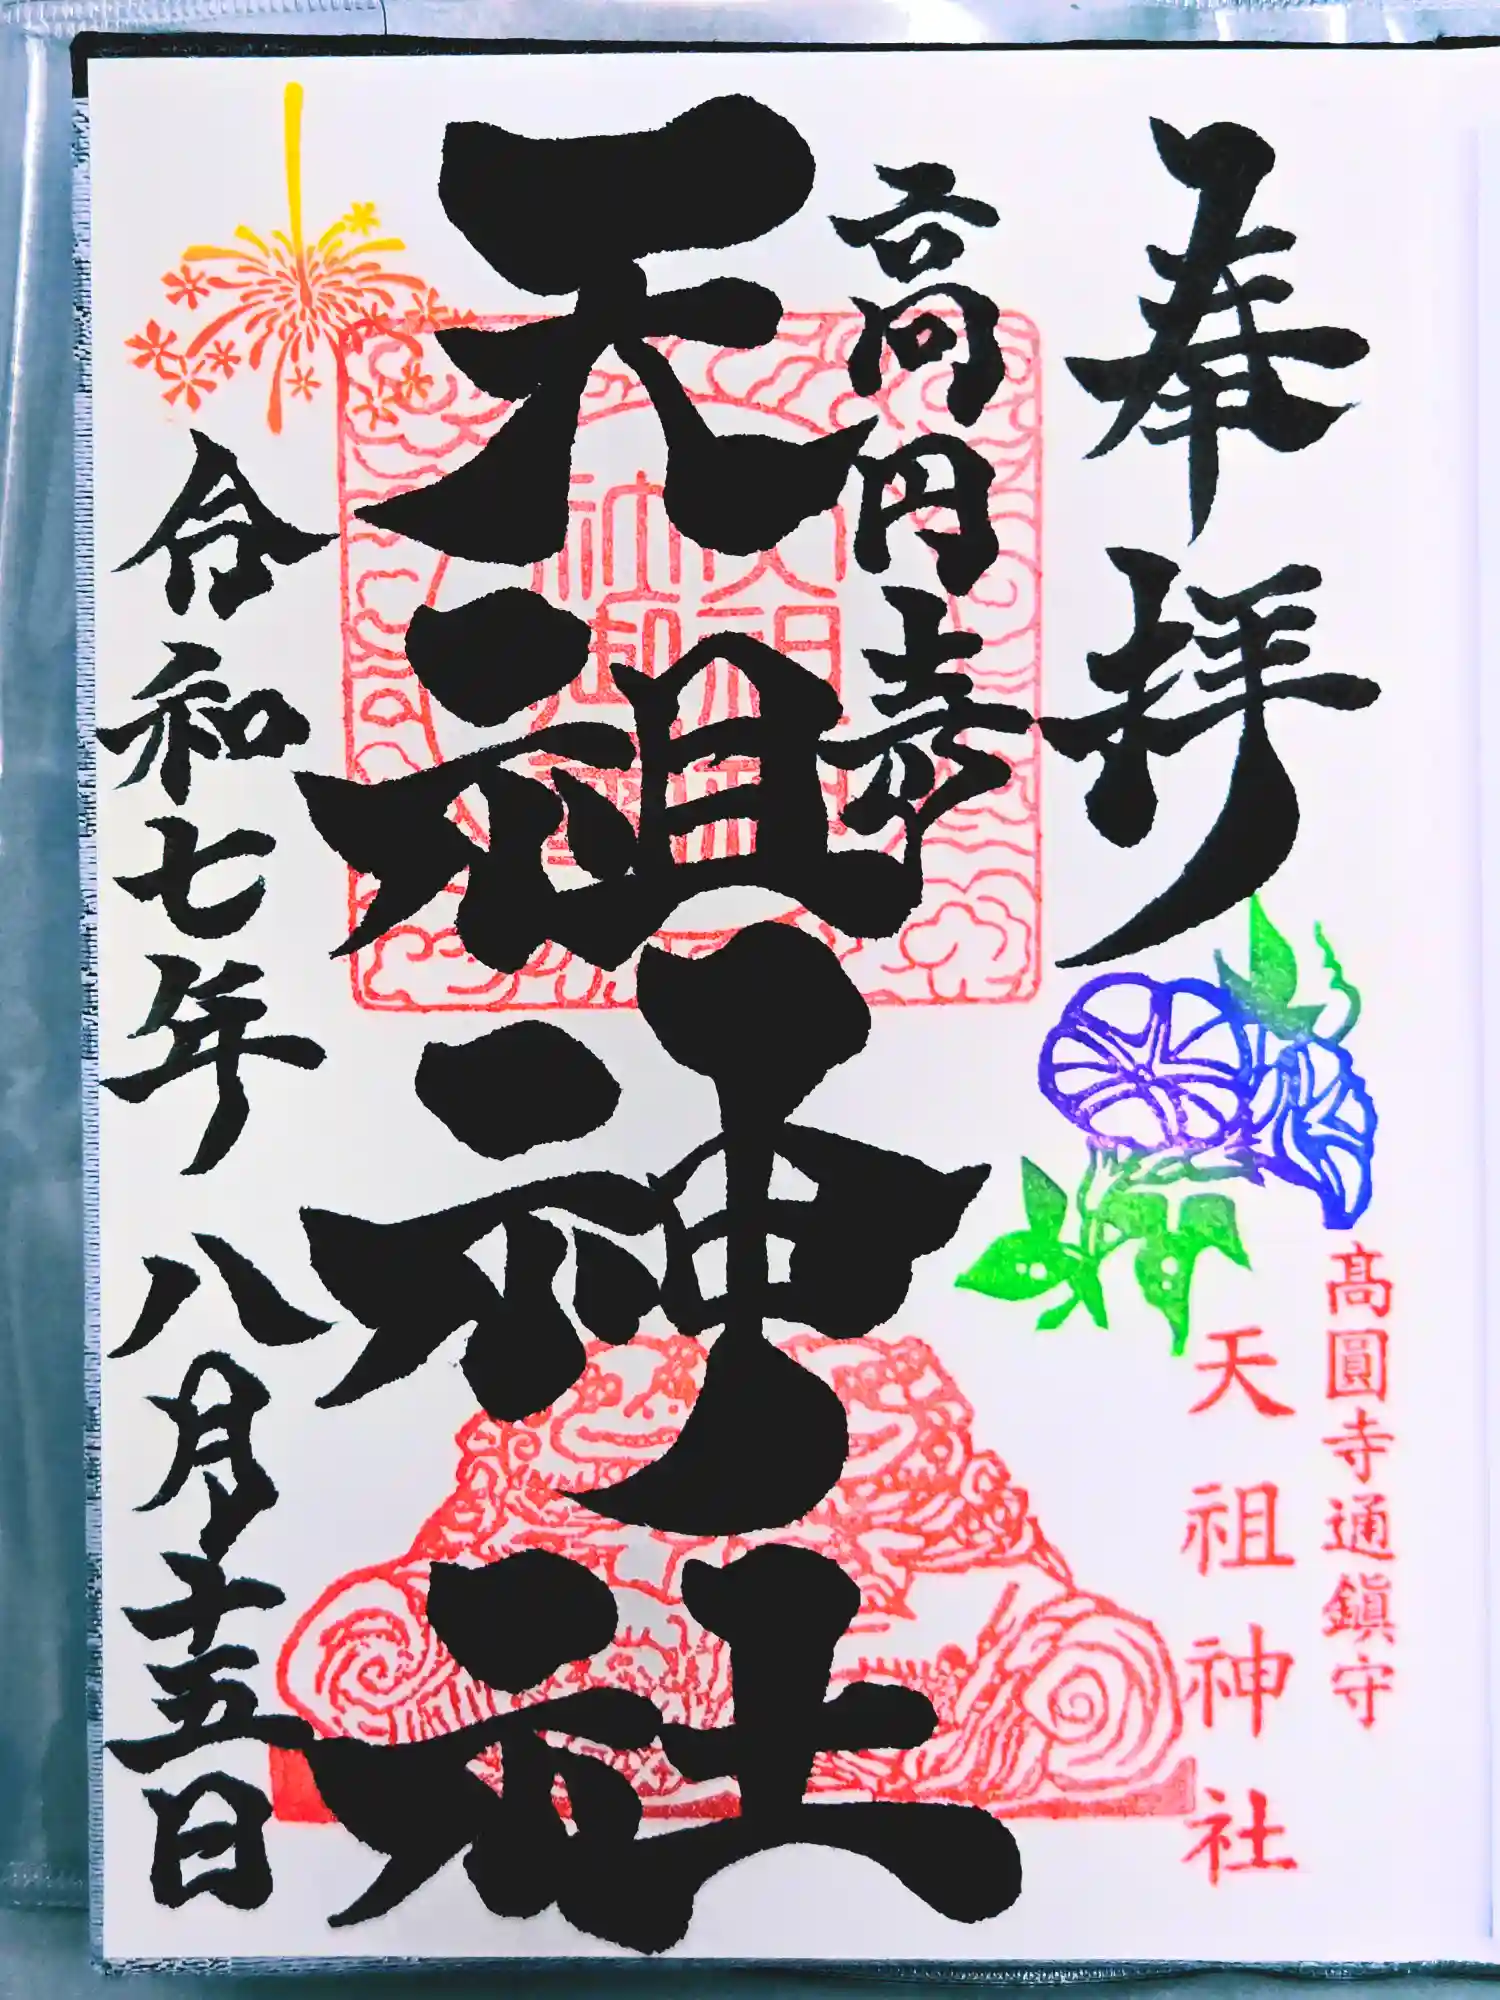 奉拝
高円寺
天祖神社
令和七年八月十五日
高圓寺通鎮守
天祖神社